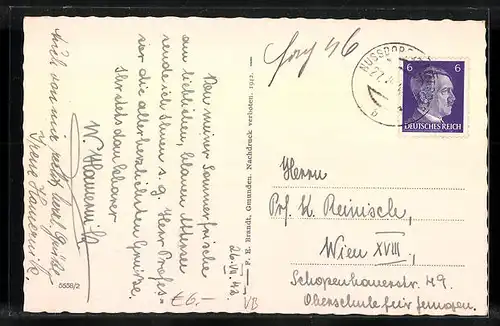 Von meiner Sommerfrische
am lieblichen, blauen Attersee
sende ich Ihnen s. g. Herr Profes-
sor die allerherzlichsten Grüße,
Ihr stets dankbarer
W. Hamernik
Auch von mir recht herzl. Grüße
Hamernik.
5658/2
€6,-
26.VII.43
VB
P. E. Brandt, Gmunden. Nachdruck verboten. 1912.
NUSSDORF
6 6
DEUTSCHES REICH
Herrn
Prof. K. Reinisch,
Wien XVIII,
Schopenhauerstr. 49.
Oberschule für Jungen.